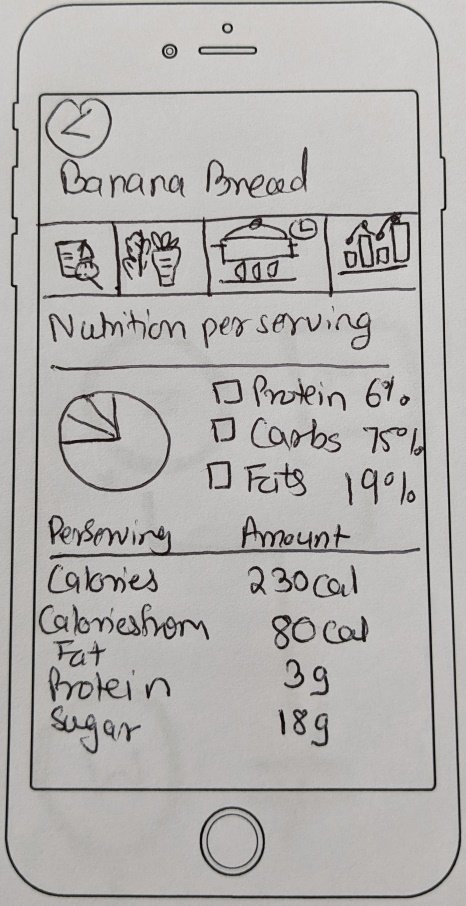 Banana Bread
Nutrition per serving
Protein 6%
Carbs 75%
Fats 19%
Perserving Amount
Calories 230 cal
Calories from 80 cal
Fat
Protein 3g
Sugar 18g